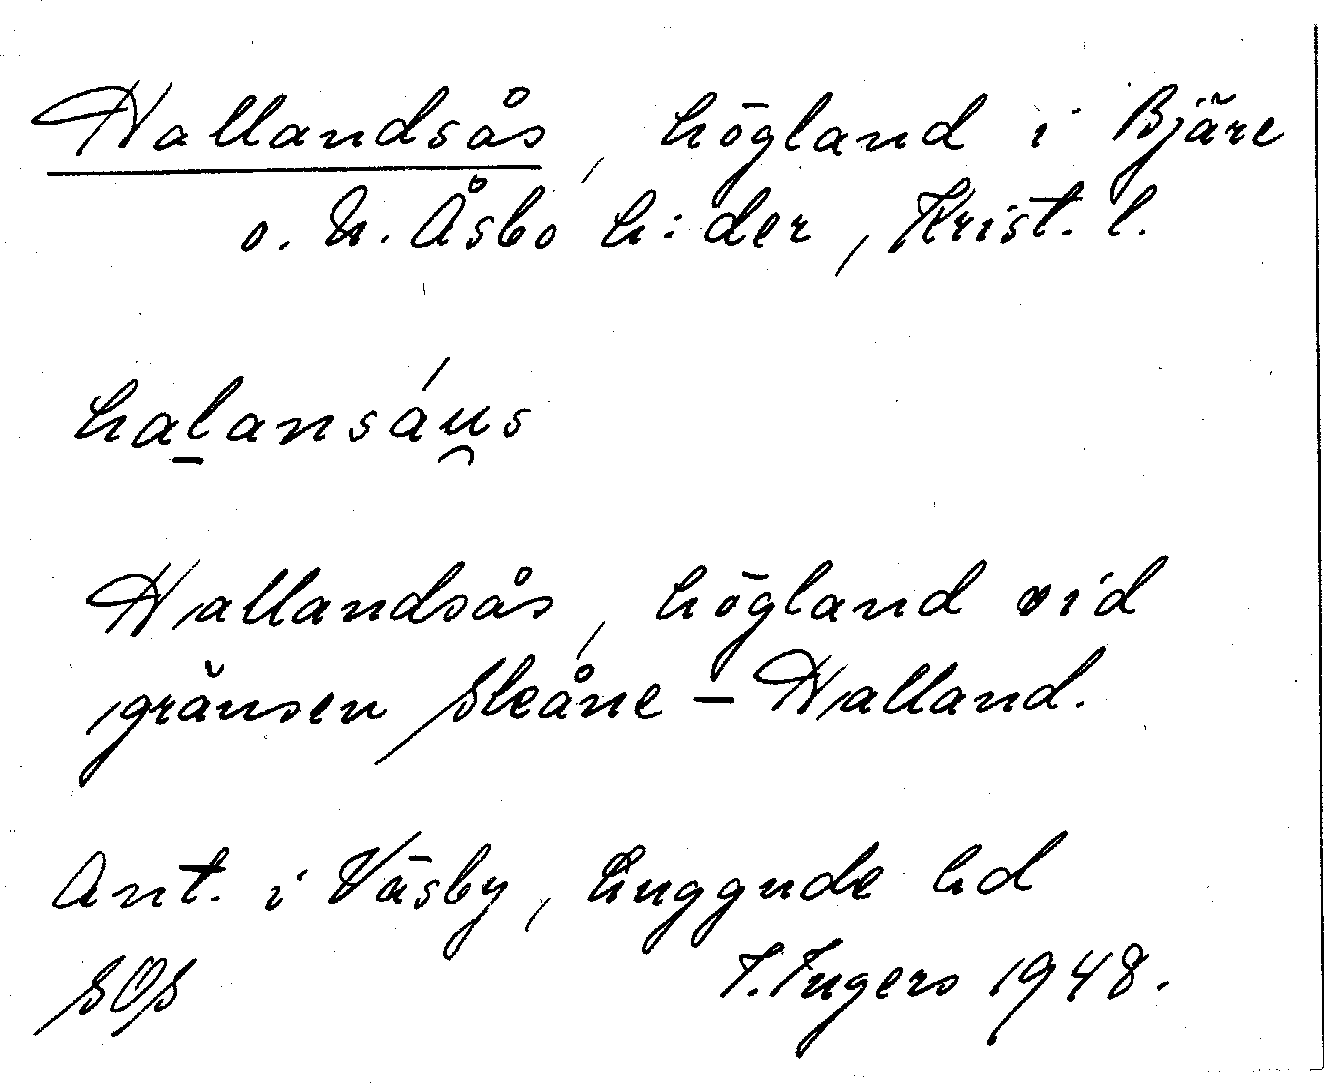 Hallandsås, högland i Bjäre
o. N. Åsbo h:der, Krist. l.
halansáu̯s
Hallandsås, högland vid
gränsen Skåne – Halland.
Ant. i Väsby, Luggude hd
SOS I. Ingers 1948.